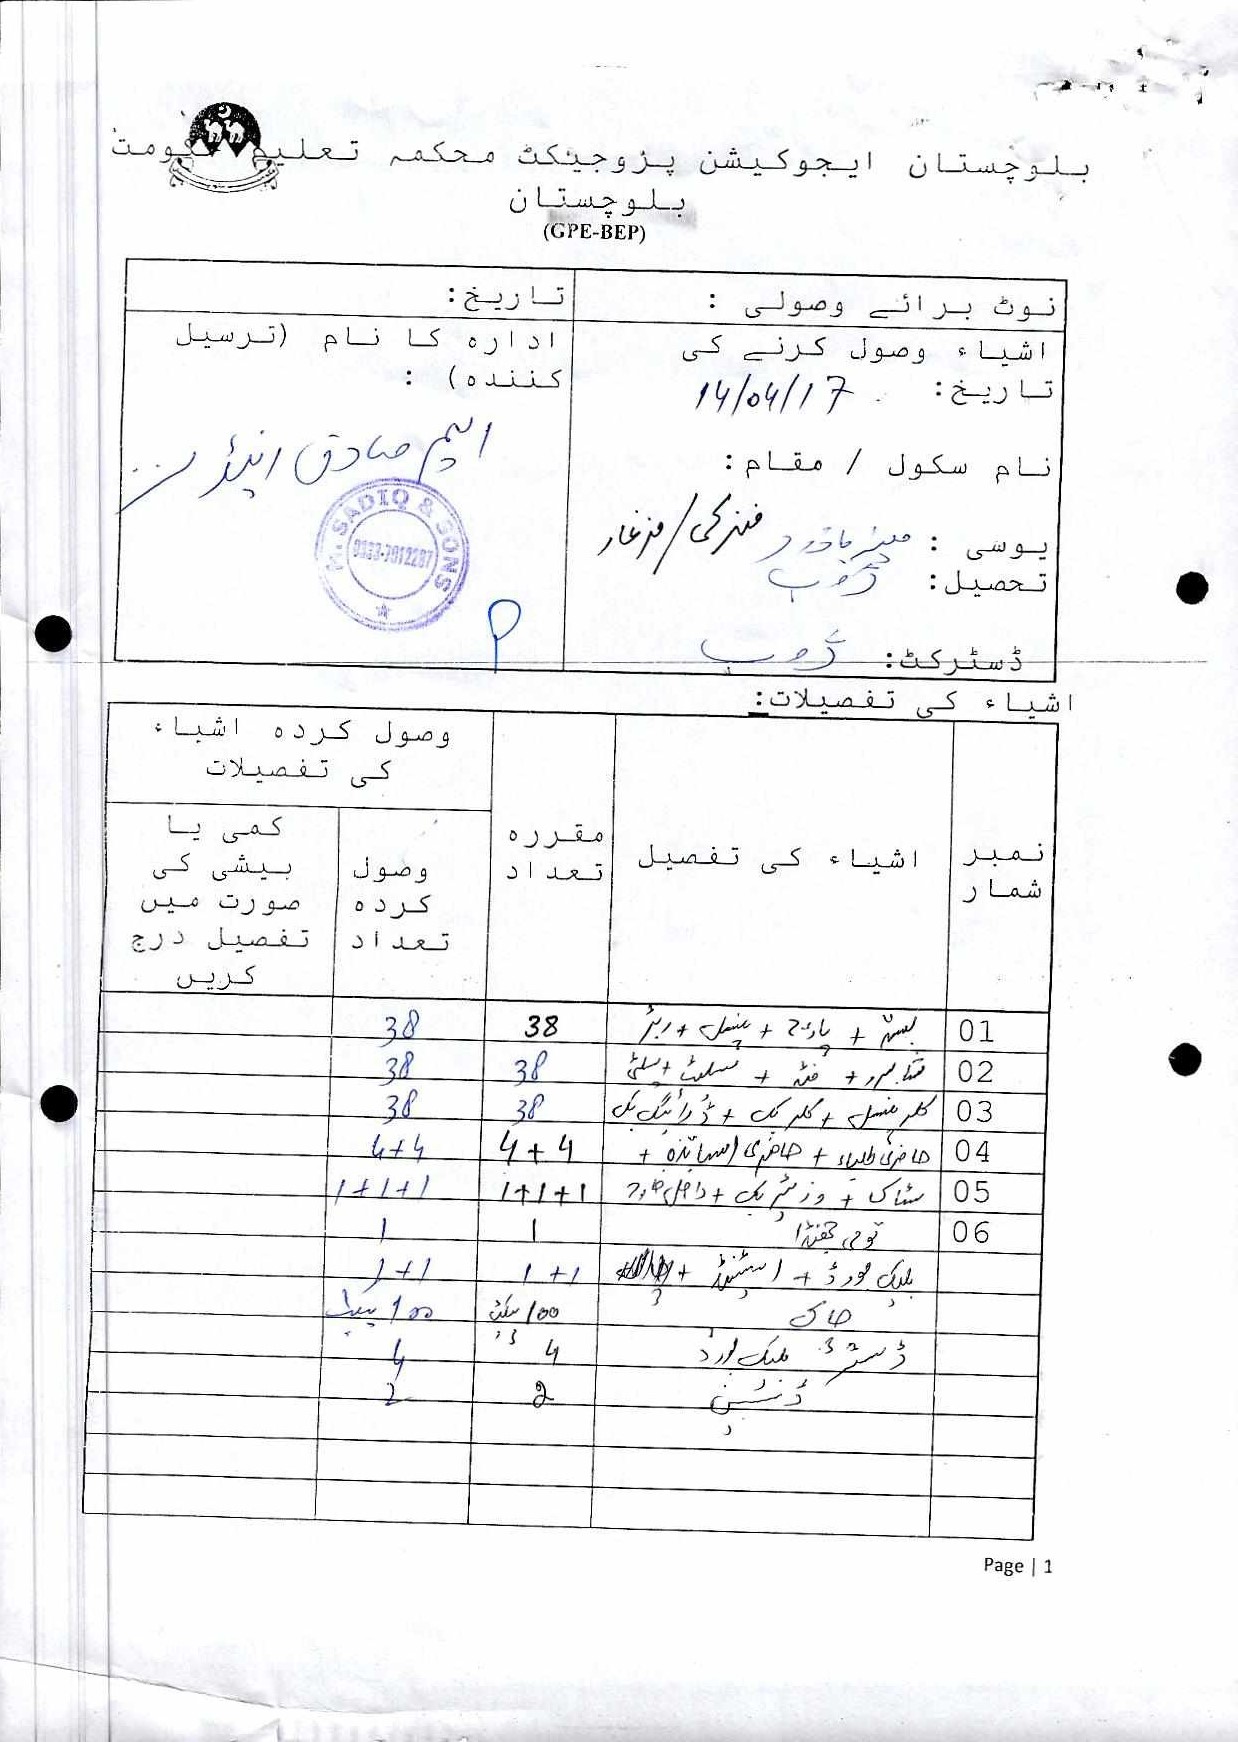 بلوچستان ایجوکیشن پروجیکٹ محکمہ تعلیم حکومت
بلوچستان
(GPE-BEP)
نوٹ برائے وصولی :
تاریخ:
اشیاء وصول کرنے کی
تاریخ: 14/04/17
نام سکول / مقام:
یوسی :
تحصیل: ژوب
ڈسٹرکٹ: ژوب
ادارہ کا نام (ترسیل
کنندہ) :
ایم صادق اینڈ سنز
M. SADIQ & SONS
اشیاء کی تفصیلات:
نمبر شمار
اشیاء کی تفصیل
مقررہ تعداد
وصول کردہ اشیاء کی تفصیلات
وصول کردہ تعداد
کمی یا بیشی کی صورت میں تفصیل درج کریں
01 بستہ + + پنسل + ربڑ 38 38
02 + فٹہ + سلیٹ + سلیٹی 38 38
03 کلر پنسل + کلر بک + ڈرائینگ بک 38 38
04 حاضری طلباء + حاضری اساتذہ + 4+4 4+4
05 سٹاک + وزیٹر بک + داخل خارج 1+1+1 1+1+1
06 قومی جھنڈا 1 1
بلیک بورڈ + اسٹینڈ + 1+1 1+1
چاک 100 پیکٹ 100 پیکٹ
ڈسٹر بلیک بورڈ 4 4
ڈسٹبن 2 2
Page | 1